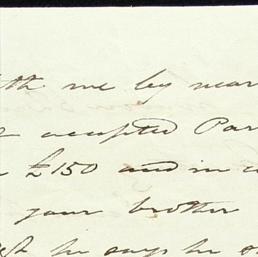 me by near
accepted Par
£150 and in c
your brother
he says he